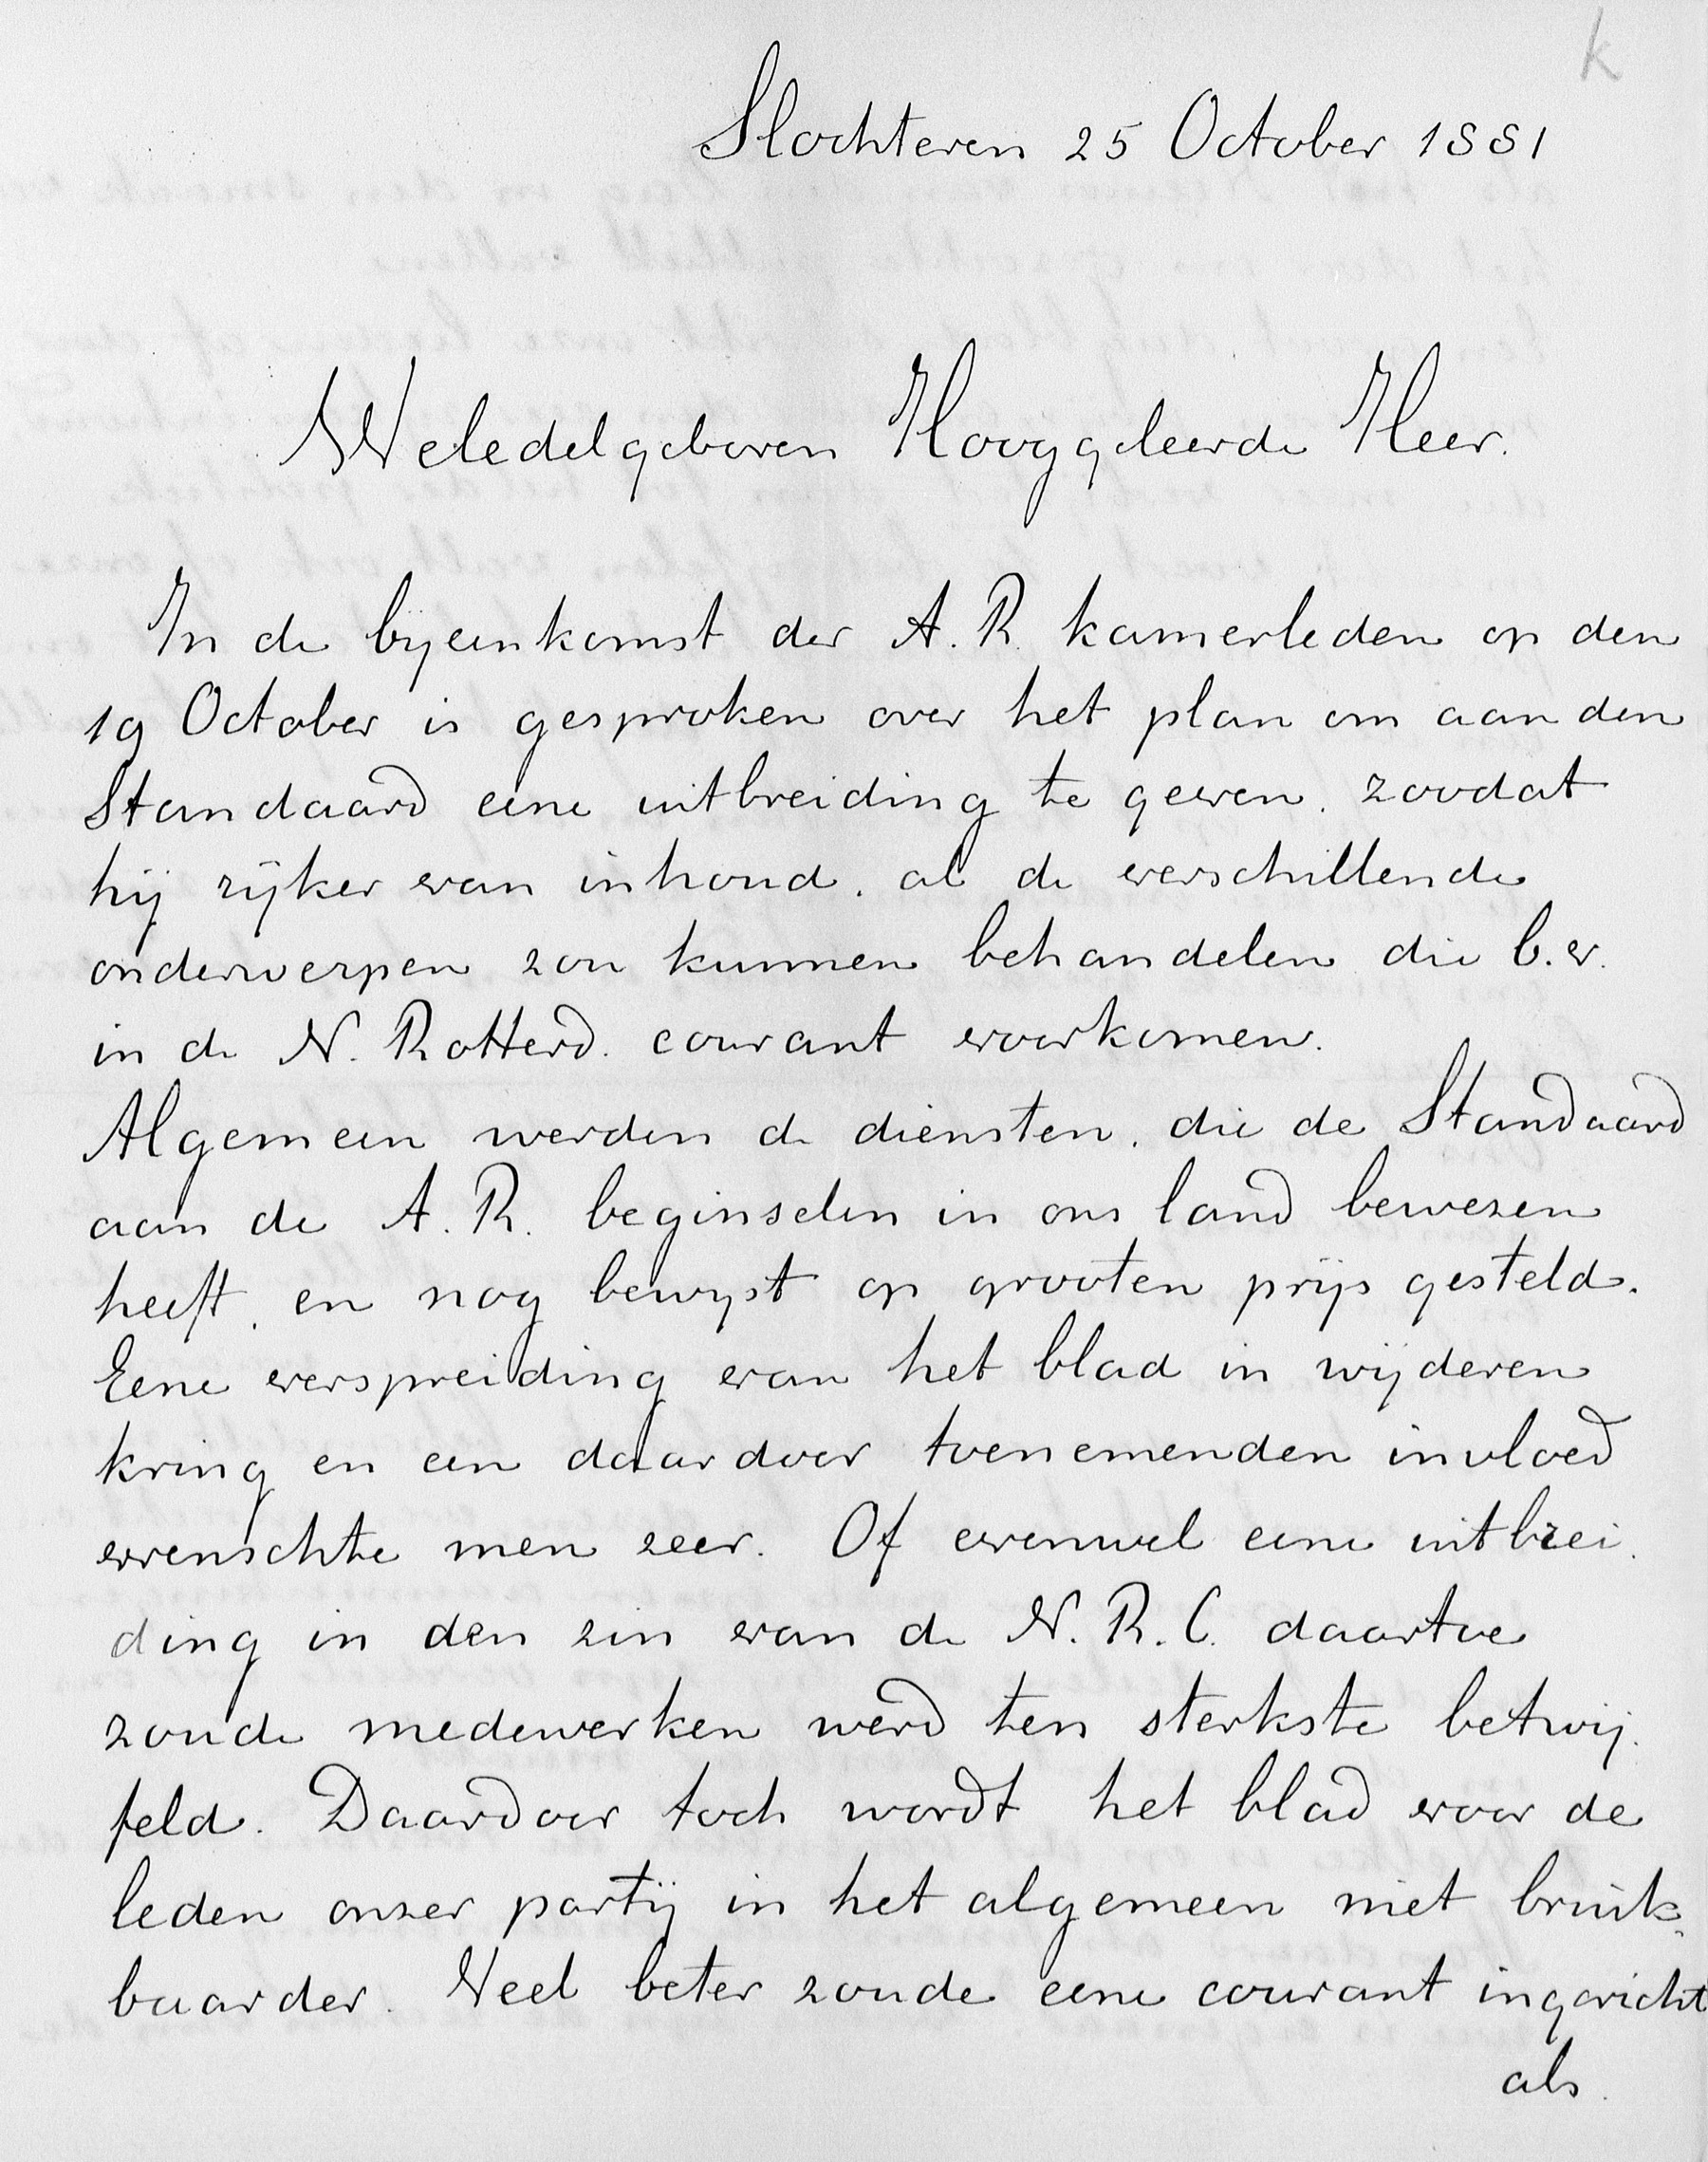 k
Slochteren 25 October 1881
Weledelgeboren Hooggeleerde Heer.
In de bijeenkomst der A.R. kamerleden op den
19 October is gesproken over het plan om aan den
Standaard eene uitbreiding te geven, zoodat
hij rijker van inhoud, al de verschillende
onderwerpen zou kunnen behandelen die b.v.
in de N. Rotterd. courant voorkomen.
Algemeen werden de diensten, die de Standaard
aan de A.R. beginselen in ons land bewezen
heeft, en nog bewijst op grooten prijs gesteld.
Eene verspreiding van het blad in wijderen
kring en een daardoor toenemenden invloed
wenschte men zeer. Of evenwel eene uitbrei-
ding in den zin van de N.R.C. daartoe
zoude medewerken werd ten sterkste betwij-
feld. Daardoor toch wordt het blad voor de
leden onzer partij in het algemeen niet bruik-
baarder. Veel beter zoude eene courant ingericht
als